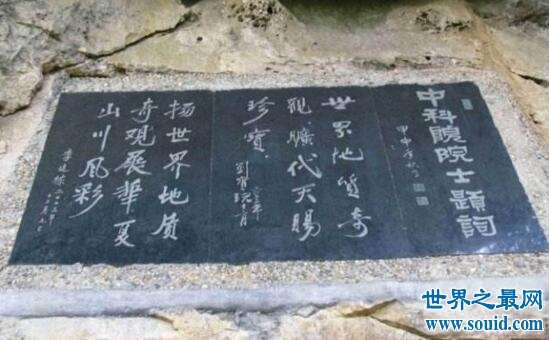 中科院院士題詞
甲申年
世界地质奇
觀、曠代天賜
珍寶．
劉寶珺
扬世界地质
奇观展华夏
山川风彩
李廷棟
世界之最网
www.souid.com